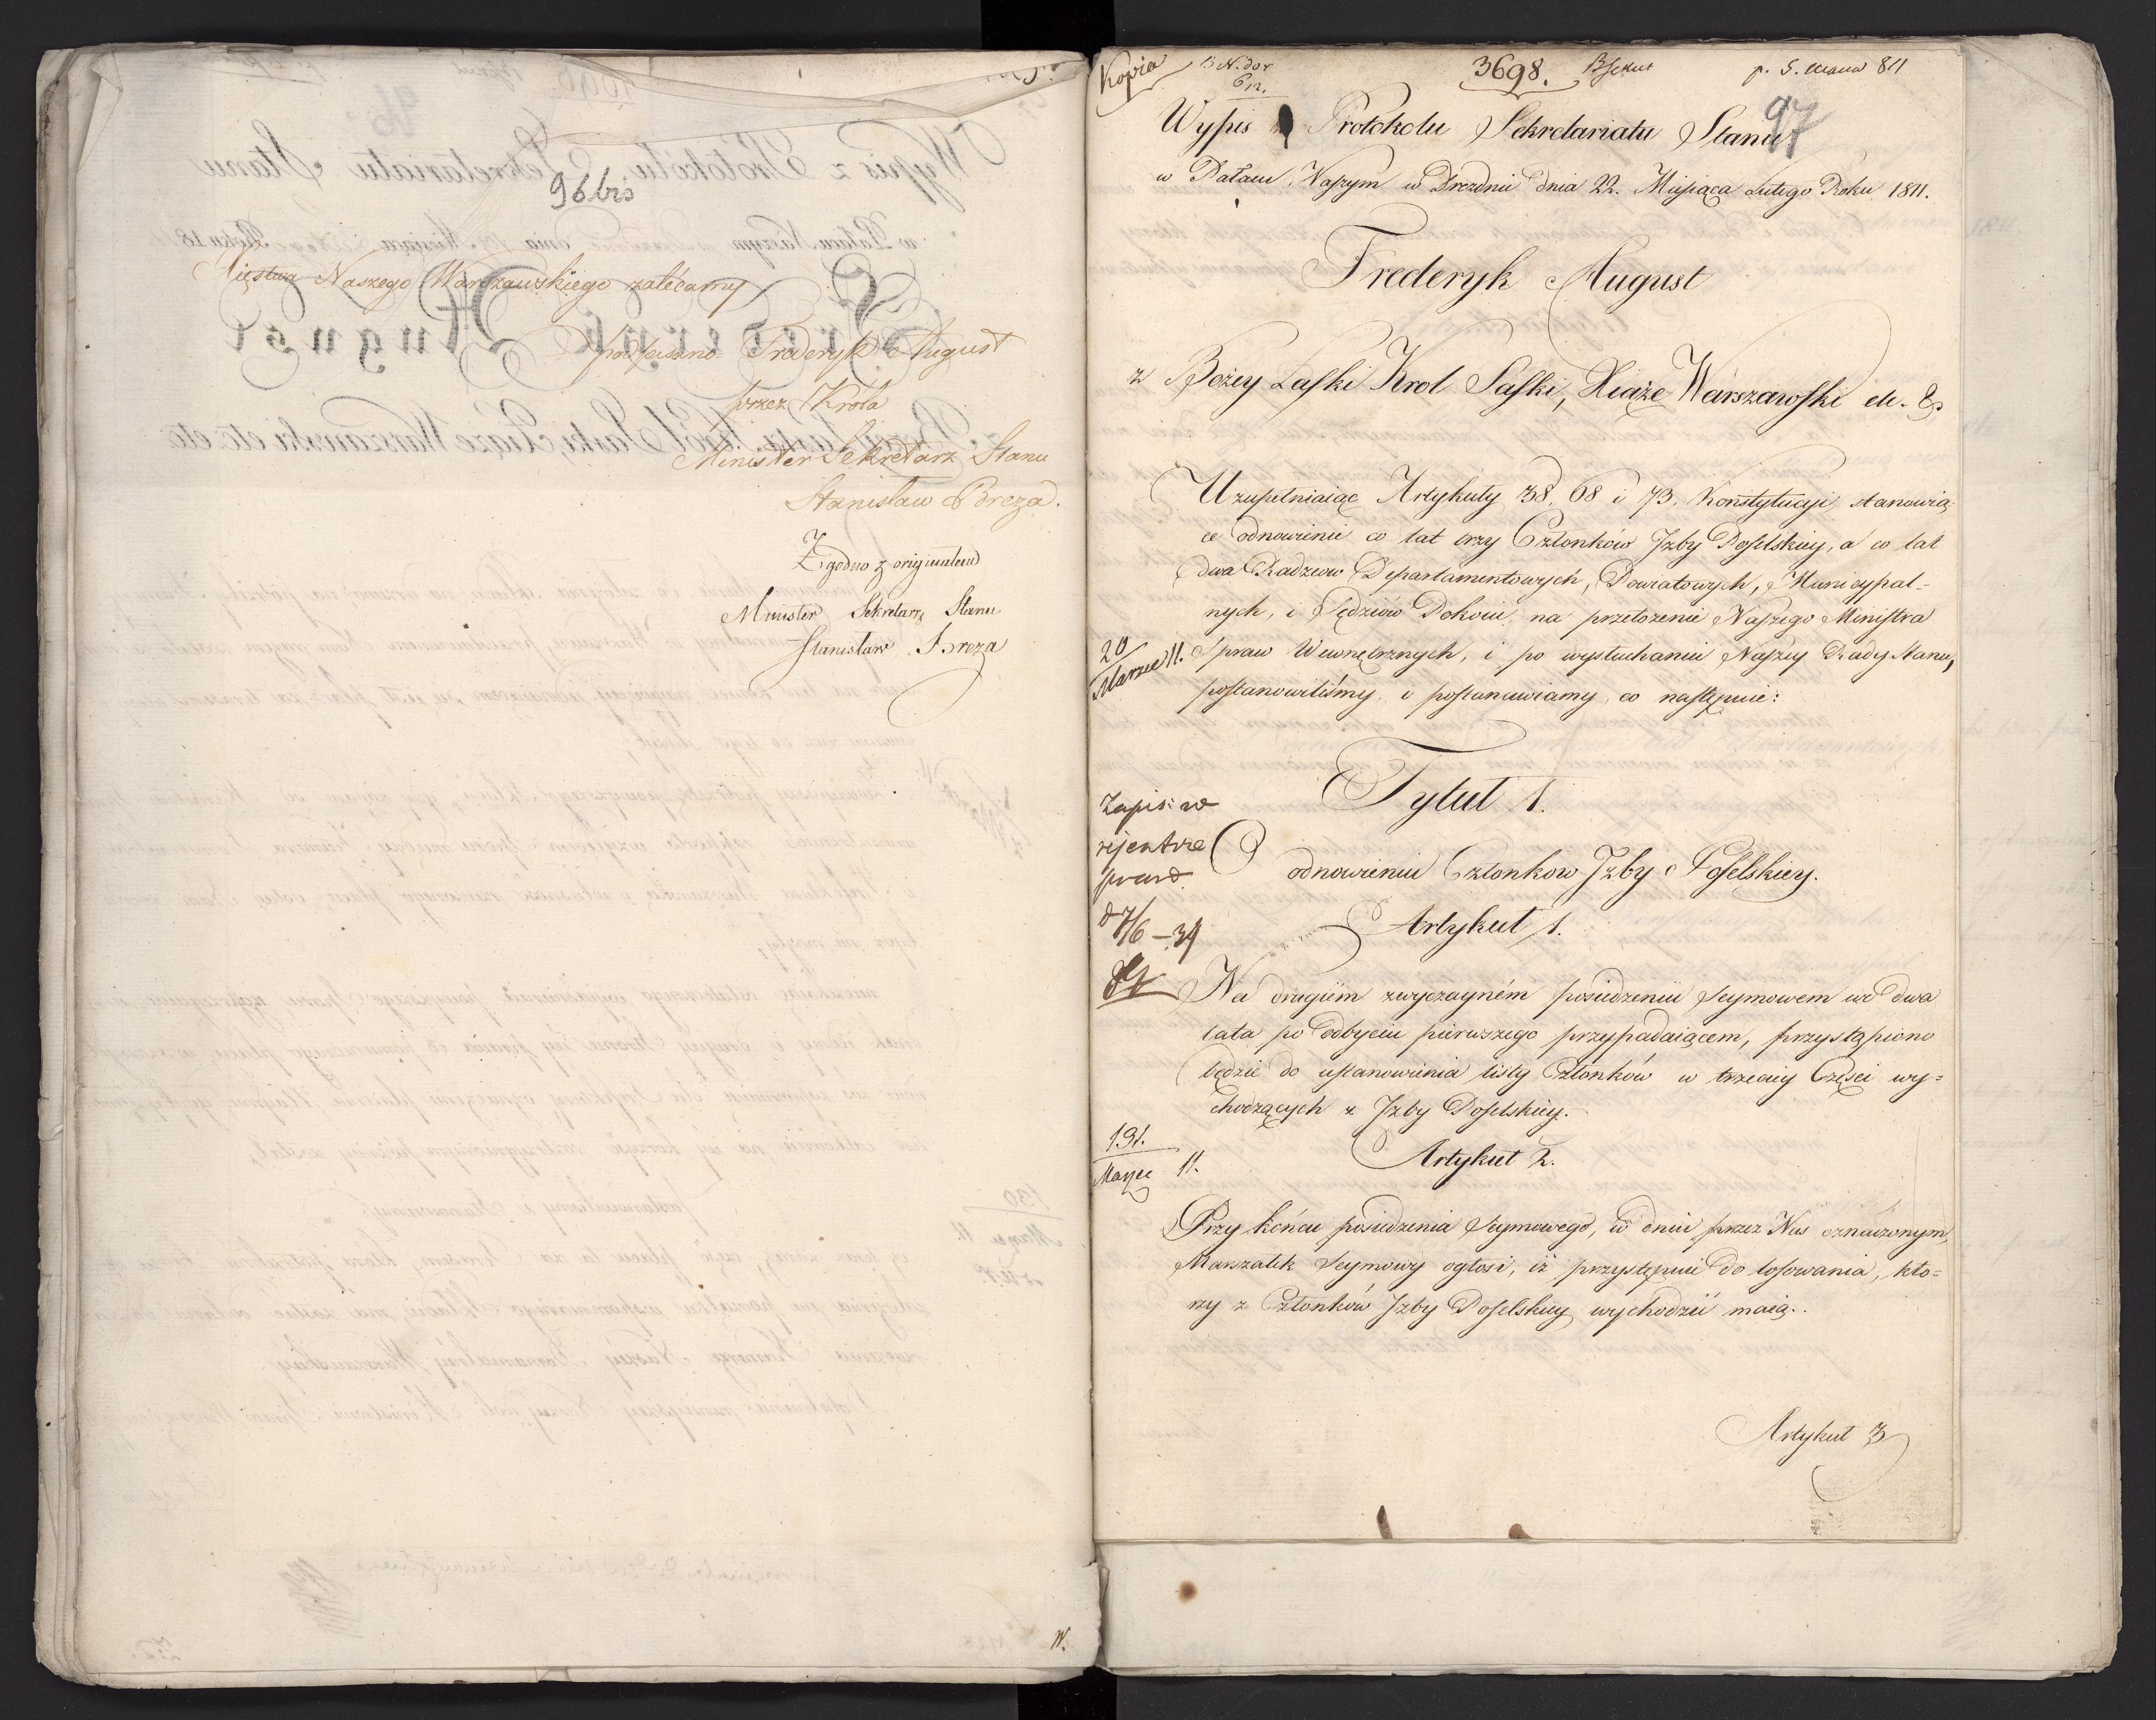 96 bis
Xięstwa Naszego Warszawskiego zalécamy
podpisano Frederyk August
przez Króla
Minister Sekretarz Stanu
Stanisław Breza.
Zgodno z originałem
Minister Sekretarz Stanu
Stanisław Breza
W.
Kopia
3698.
p. 5. Marca 811
97
Wypis z Protokołu Sekretariatu Stanu
w Pałacu Naszym w Dreznie dnia 22. Miesiąca Lutego Roku 1811.
Frederyk August
z Bożey Łaski Krol Saski, Xiąże Warszawski etc. &
Uzupełniaiąc Artykuły 38, 68 i 73. Konstytucyi stanowią-
ce odnowienie co lat trzy Członków Izby Poselskiey, a co lat
dwa Radzców Departamentowych, Powiatowych, Municypal-
nych, i Sędziów Pokoiu, na przełożenie Naszego Ministra
20
Marzec 11.
Spraw Wewnętrznych, i po wysłuchaniu Naszey Rady Stanu,
postanowiliśmy i postanawiamy co następuie:
Tytuł 1.
Zapis: w
rejentrze
praw.
d 7/6 – 34
O odnowieniu Członkow Izby Poselskiey.
Artykuł 1.
Na drugiém zwyczayném posiedzeniu Seymowem we dwa
lata po odbyciu pierwszego przypadaiącem, przystąpiono
będzie do ustanowienia listy Członków w trzeciey Części wy=
chodzących z Izby Poselskiey.
131.
Marzec 11.
Artykuł 2.
Przy końcu posiedzenia Seymowego, w dniu przez Nas oznaczonym,
Marszałek Seymowy ogłosi, iż przystępuie do losowania, któ=
rzy z Członków Izby Poselskiey wychodzić maią.
Artykuł 3